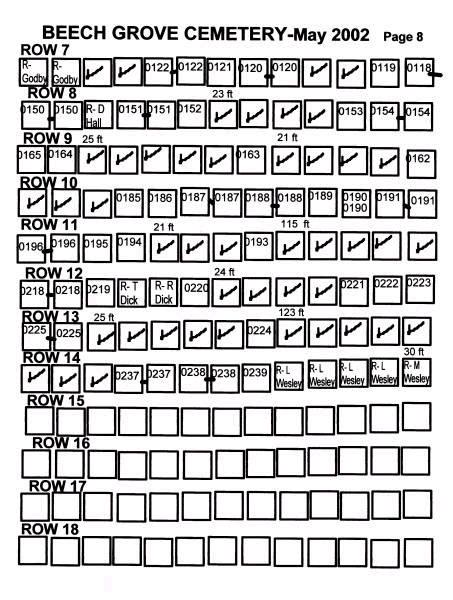 BEECH GROVE CEMETERY-May 2002 Page 8
ROW 7
R-Godby R-Godby 0122 0122 0121 0120 0120 0119 0118
ROW 8 23 ft
0150 0150 R- D Hall 0151 0151 0152 0153 0154 0154
ROW 9 25 ft 21 ft
0165 0164 0163 0162
ROW 10
0185 0186 0187 0187 0188 0188 0189 0190 0190 0191 0191
ROW 11 21 ft 115 ft
0196 0196 0195 0194 0193
ROW 12 24 ft
0218 0218 0219 R- T Dick R- R Dick 0220 0221 0222 0223
ROW 13 25 ft 123 ft
0225 0225 0224
ROW 14 30 ft
0237 0237 0238 0238 0239 R- L Wesley R- L Wesley R- L Wesley R- L Wesley R- M Wesley
ROW 15
ROW 16
ROW 17
ROW 18